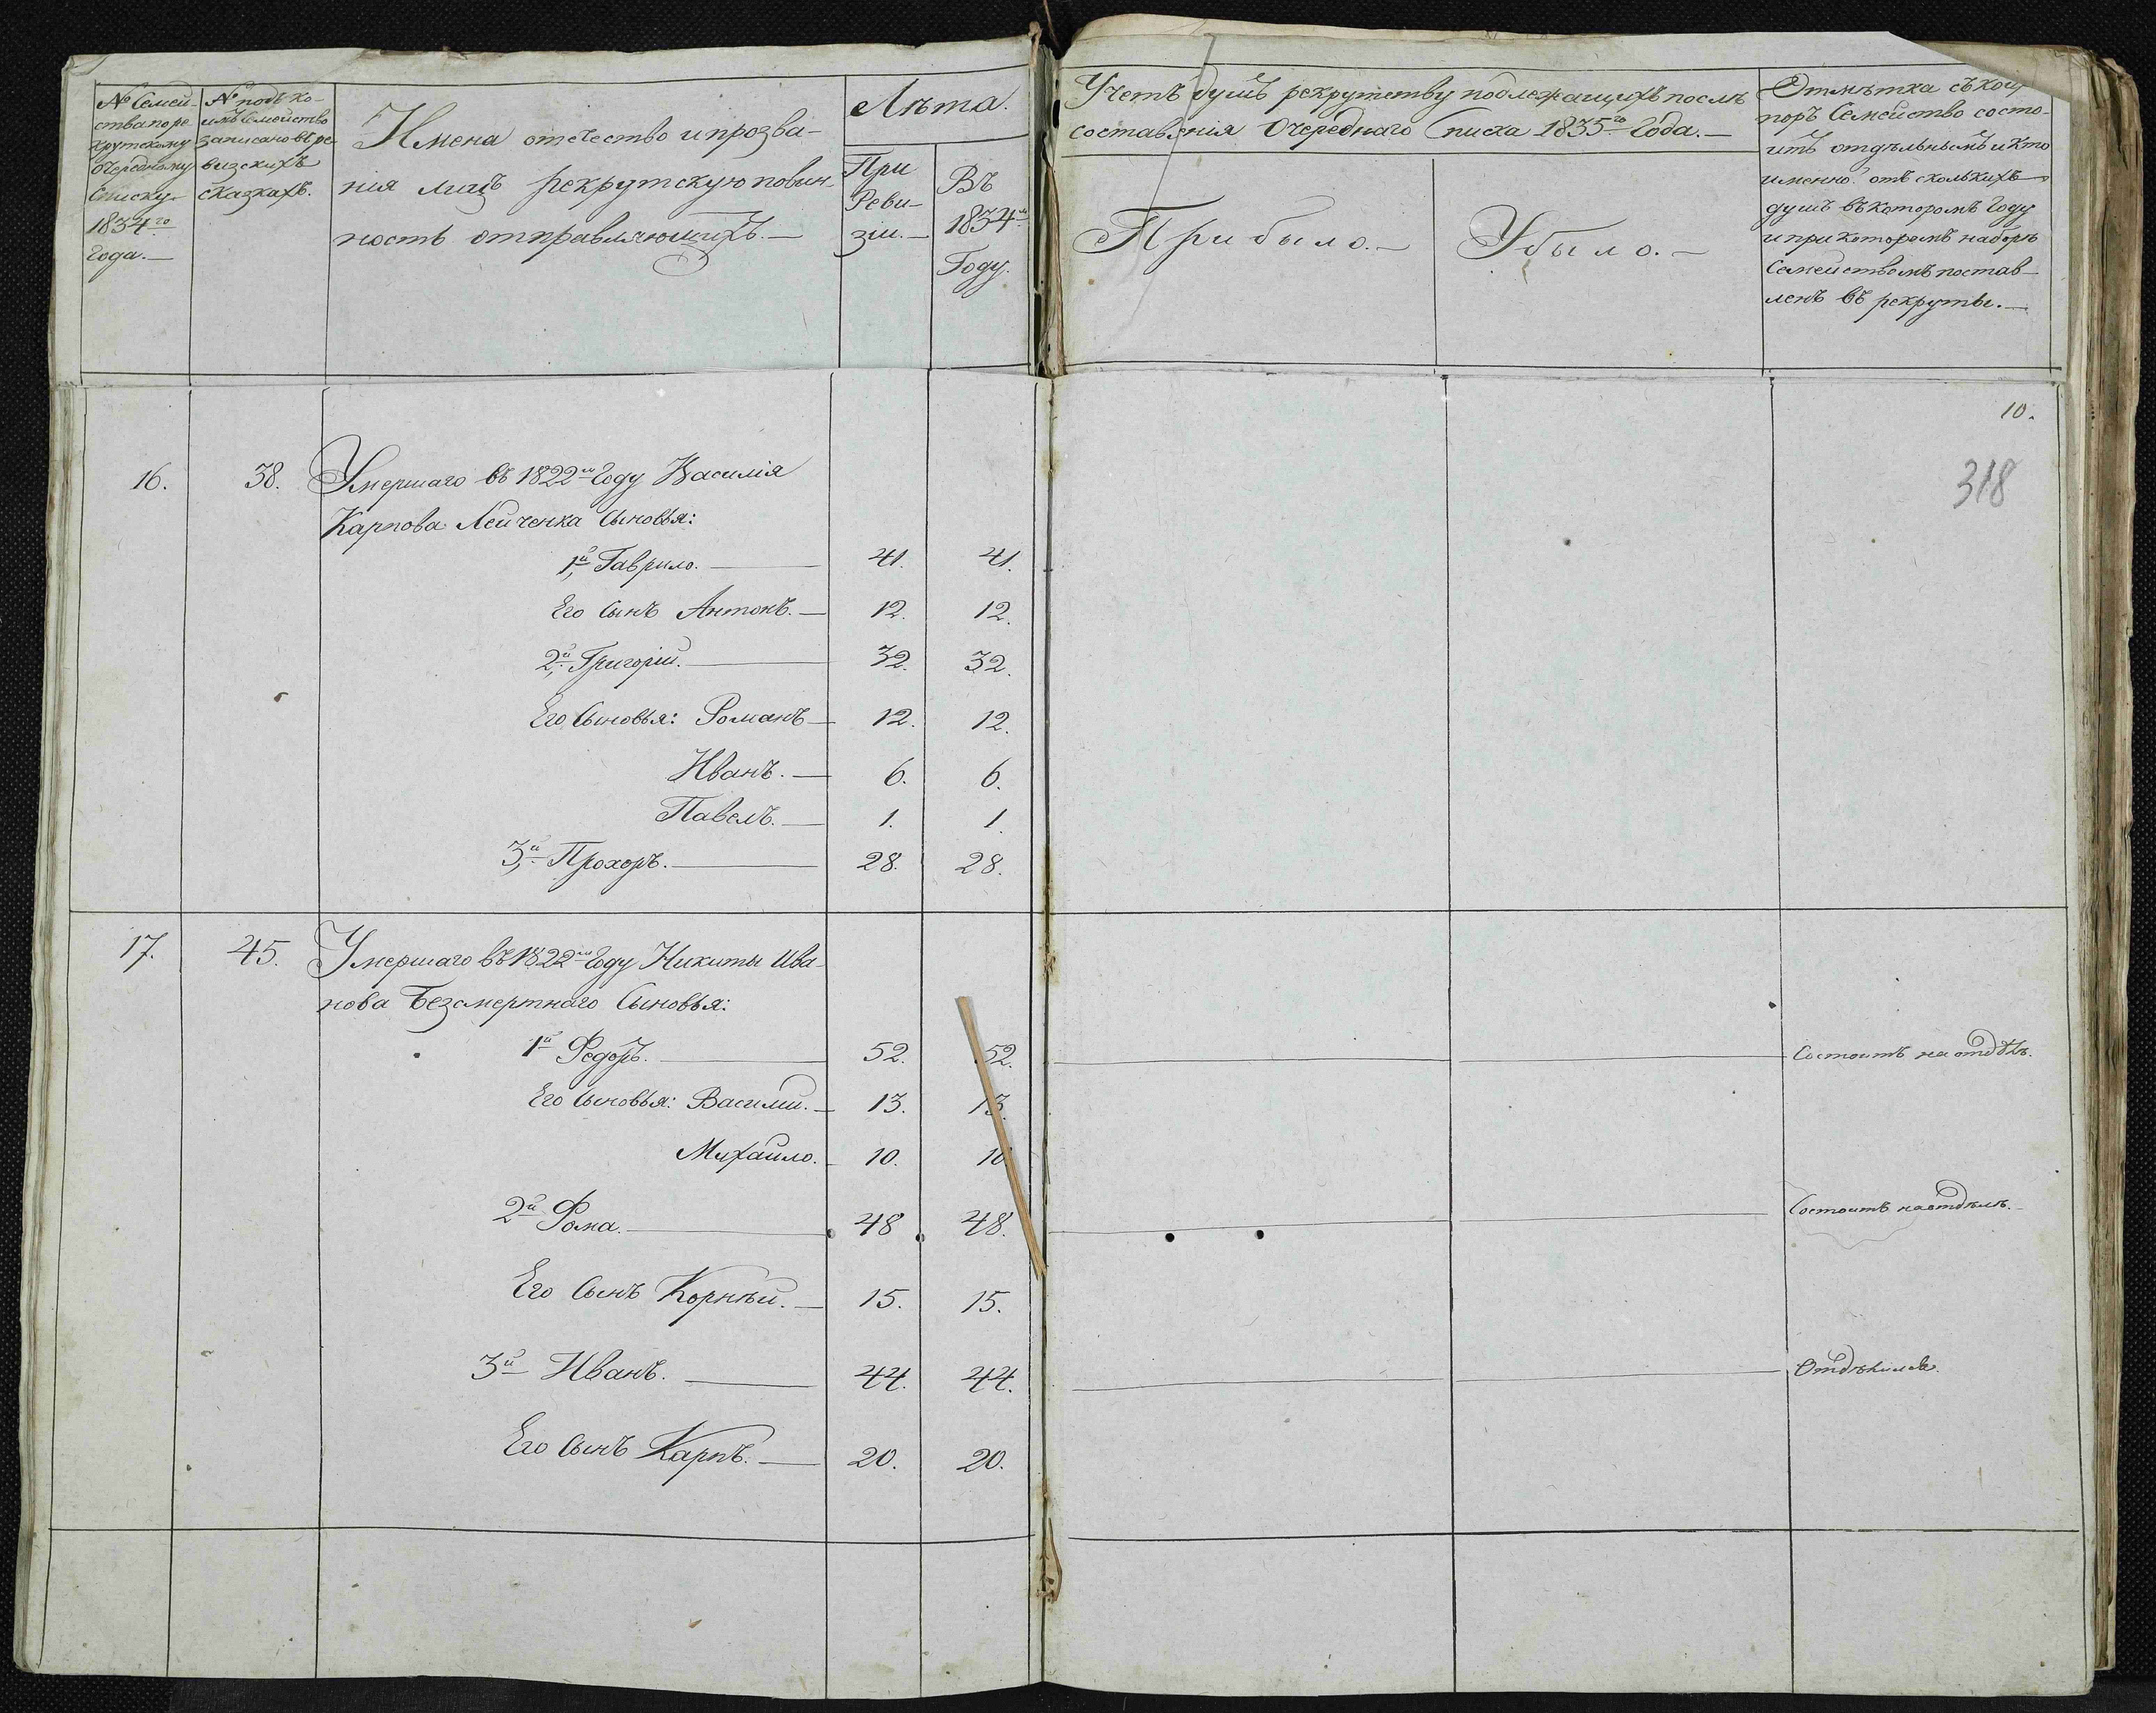 № Семей-
ства по ре
крутскому
очередному
Списку
1834го
года.
№ подъ ко-
имъ Семейство
записано въ ре
визскихъ
сказкахъ.
Имена отечество и прозва-
нія лицъ рекрутскую повин-
ность отправляющихъ.
Лѣта.
При
Реви-
зіи.
Въ
1834м
Году.
Учетъ душъ рекрутству подлежащихъ послѣ
составленія Очереднаго Списка 1835го Года.
Прибыло.
Убыло.
Отмѣтка съ кой
поръ Семейство состо-
итъ отдѣльнымъ и кто
именно отъ сколькихъ
душъ въ которомъ Году
и при которомъ наборѣ
Семействомъ постав-
ленъ въ рекруты.
10.
318
16. 38. Умершаго въ 1822м Году Василія
Карпова Лейченка Сыновья:
1й Гаврило. 41. 41.
Его Сынъ Антонъ. 12. 12.
2й Григорій. 32. 32.
Его Сыновья: Романъ 12. 12.
Иванъ. 6. 6.
Павелъ. 1. 1.
3й Прохоръ. 28. 28.
17. 45. Умершаго въ 1822м Году Никиты Ива-
нова Безсмертнаго Сыновья:
1й Федоръ. 52. 52. Состоитъ на отдѣлѣ.
Его Сыновья: Василій. 13. 13.
Михайло. 10. 10
2й Фома. 48 48. Состоитъ на отдѣлѣ.
Его Сынъ Корнѣй. 15. 15.
3й Иванъ. 44. 44.
Его Сынъ Карпъ. 20. 20.